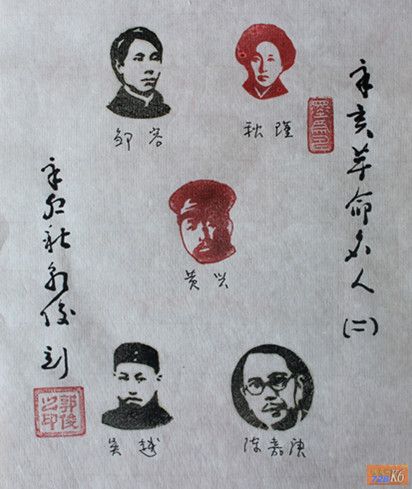 辛亥革命名人(二)
邹容
秋瑾
黄兴
吴越
陈嘉庚
辛卯秋郭俊刻
郭俊之印